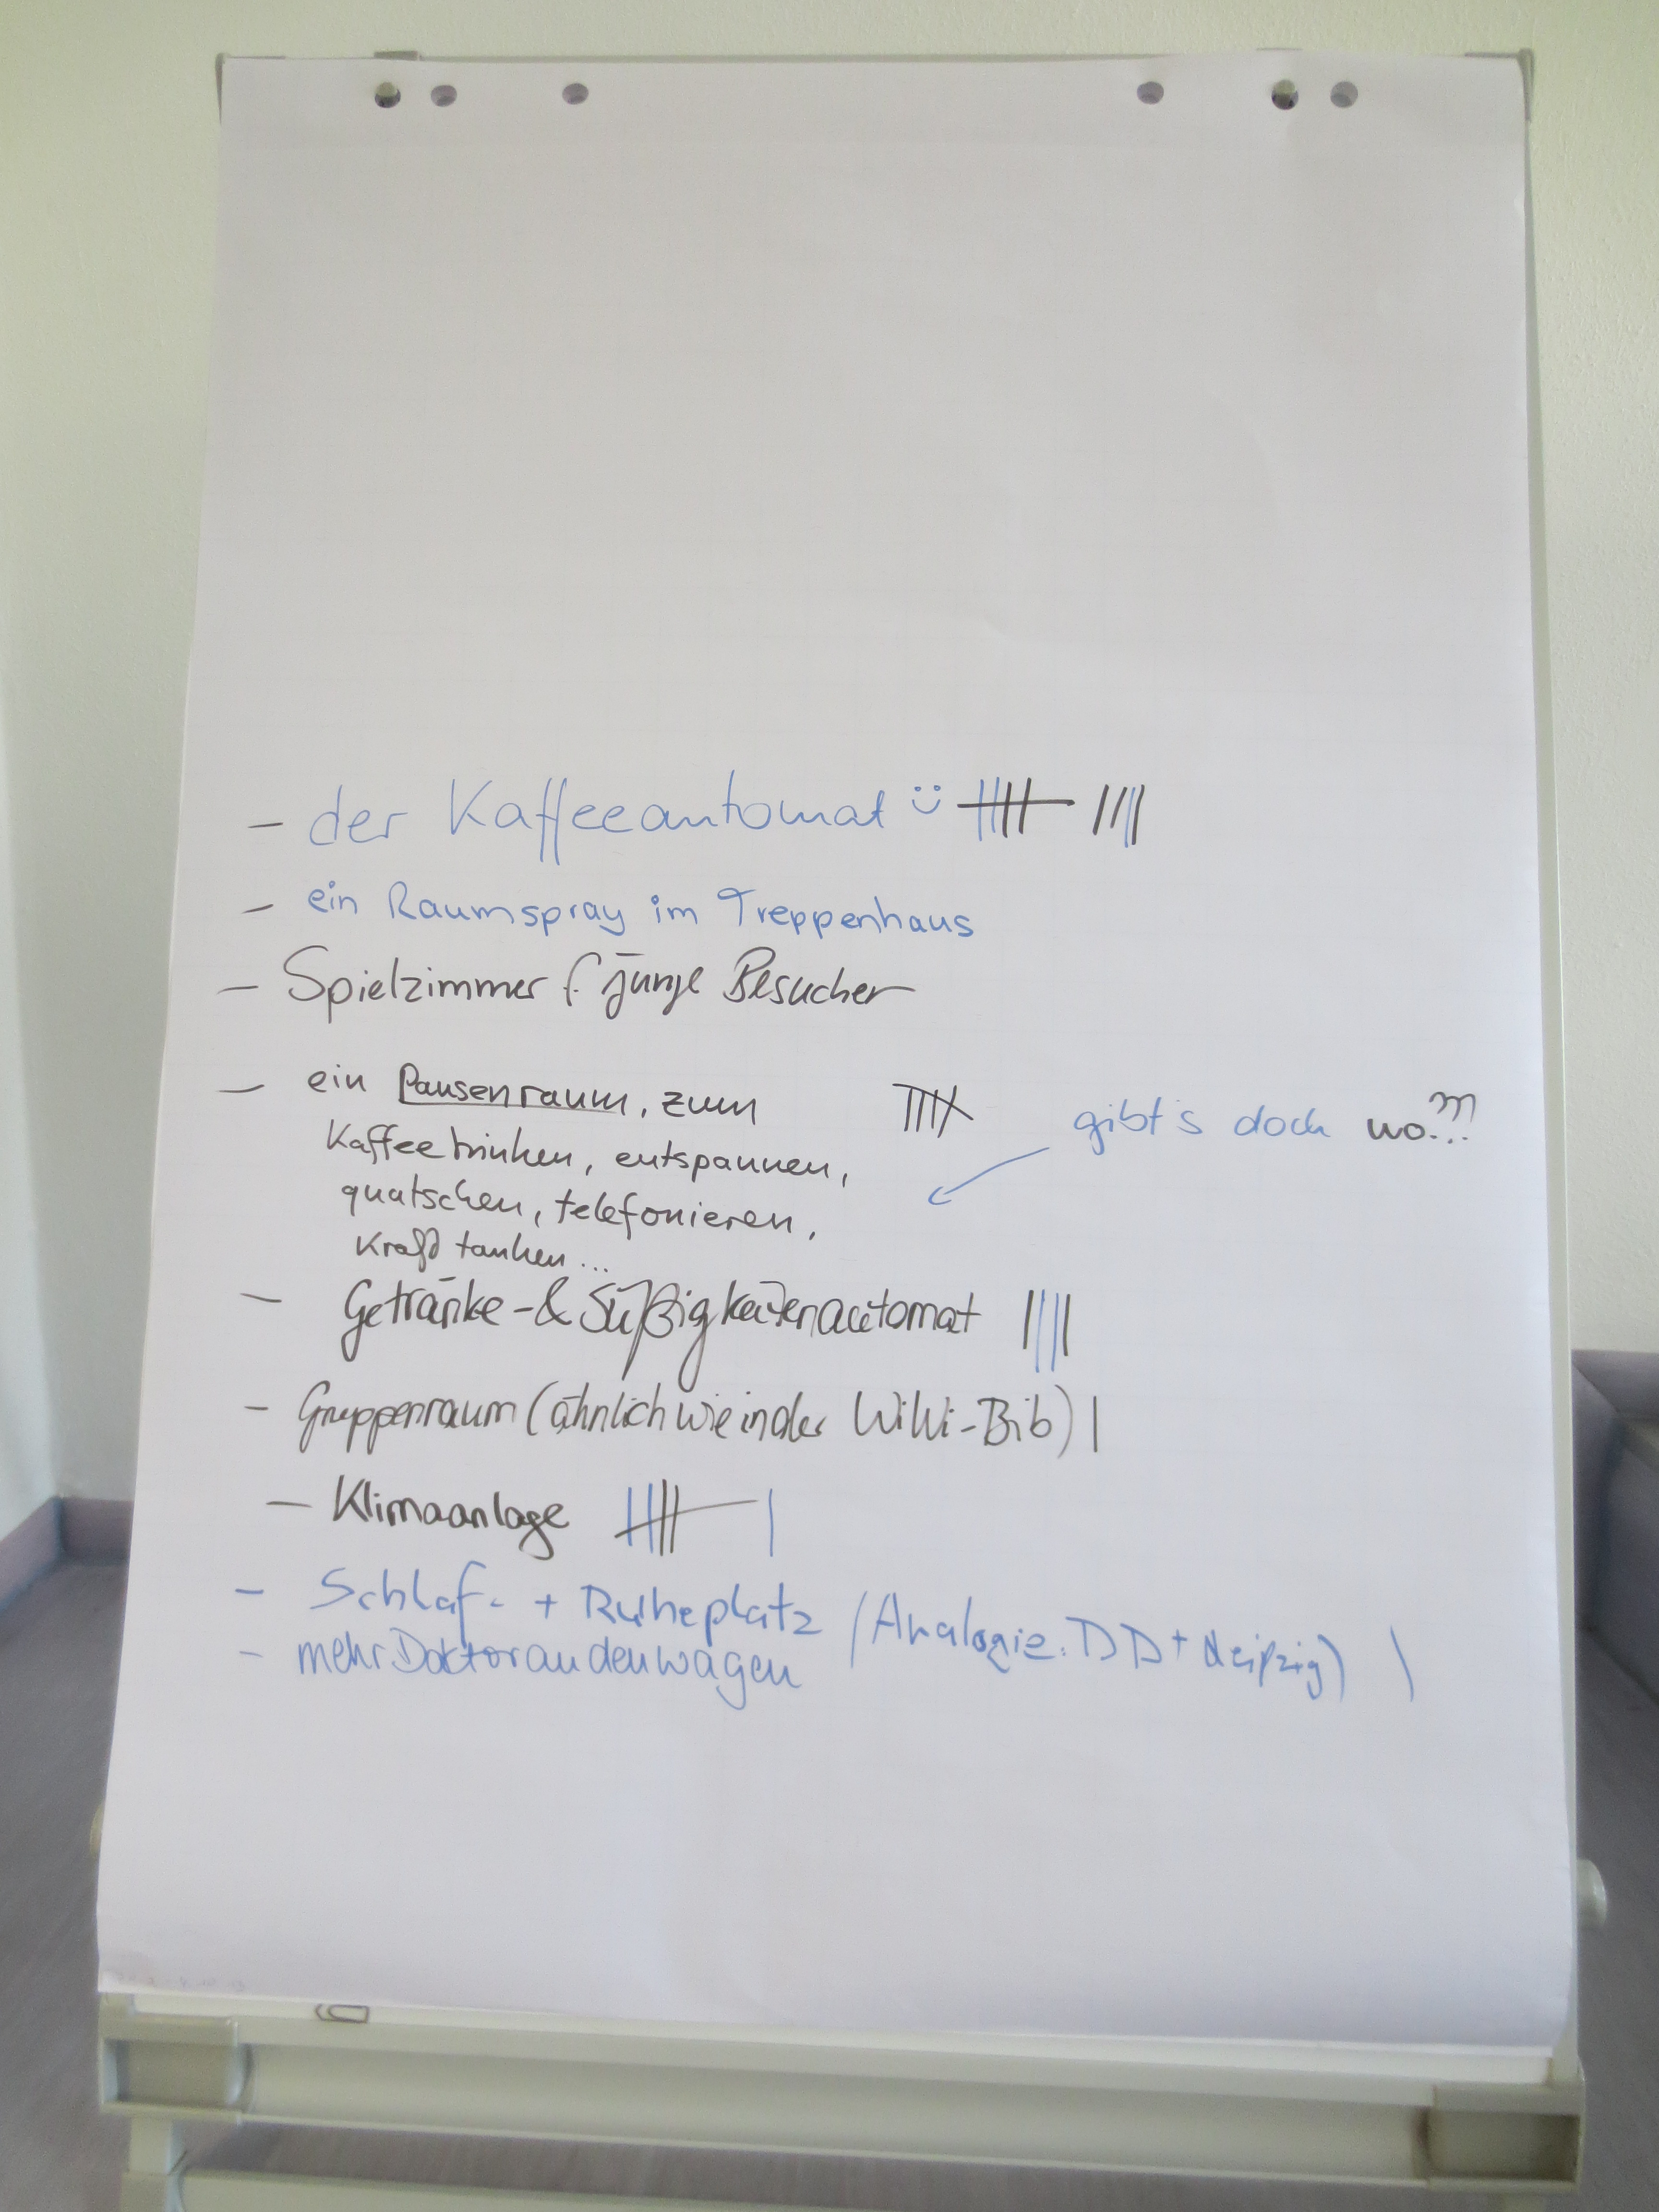 - der Kaffeeautomat :) |||| ||||
- ein Raumspray im Treppenhaus
- Spielzimmer f. junge Besucher
- ein Pausenraum, zum
Kaffeetrinken, entspannen,
quatschen, telefonieren,
Kraft tanken...
gibt's doch wo???
- Getränke-& Süßigkeitenautomat ||||
- Gruppenraum (ähnlich wie in der WiWi-Bib) |
- Klimaanlage |||| |
- Schlaf- + Ruheplatz (Analogie: DD + Leipzig) |
- mehr Doktorandenwagen